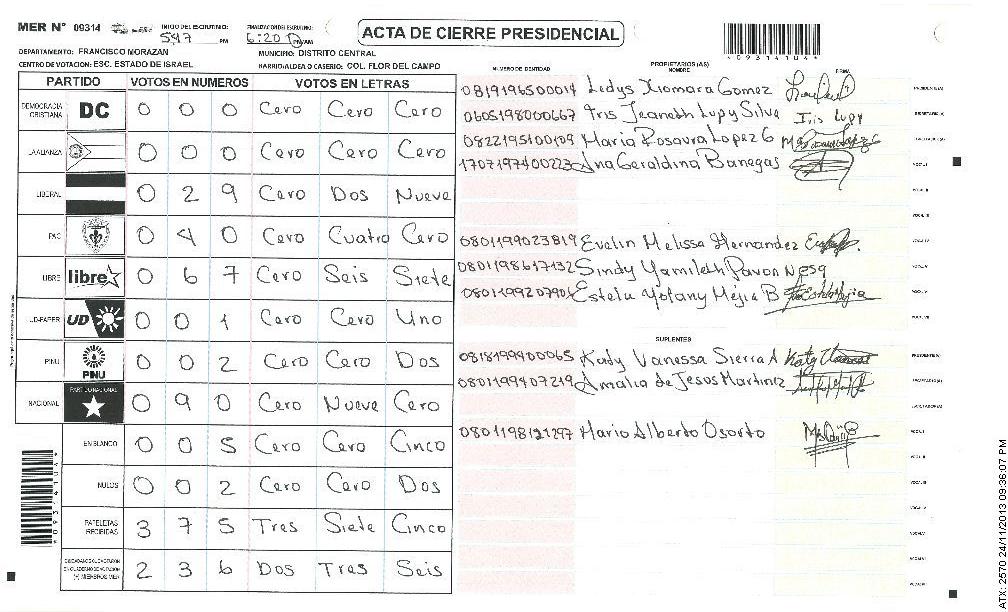 MER N° 09314
INICIO DEL ESCRUTINIO: 5:47 PM
FINALIZACION DEL ESCRUTINIO: 6:20 PM/AM
ACTA DE CIERRE PRESIDENCIAL
*09314104*
DEPARTAMENTO: FRANCISCO MORAZAN
MUNICIPIO: DISTRITO CENTRAL
CENTRO DE VOTACION: ESC. ESTADO DE ISRAEL
BARRIO/ALDEA O CASERIO: COL. FLOR DEL CAMPO
PARTIDO VOTOS EN NUMEROS VOTOS EN LETRAS
DEMOCRACIA CRISTIANA DC 0 0 0 Cero Cero Cero
LA ALIANZA 0 0 0 Cero Cero Cero
LIBERAL 0 2 9 Cero Dos Nueve
PAC 0 4 0 Cero Cuatro Cero
LIBRE libre 0 6 7 Cero Seis Siete
UD-FAPER UD 0 0 1 Cero Cero Uno
PINU PINU 0 0 2 Cero Cero Dos
NACIONAL PARTIDO NACIONAL 0 9 0 Cero Nueve Cero
EN BLANCO 0 0 5 Cero Cero Cinco
NULOS 0 0 2 Cero Cero Dos
PAPELETAS RECIBIDAS 3 7 5 Tres Siete Cinco
(+) MIEMBROS MER 2 3 6 Dos Tres Seis
NUMERO DE IDENTIDAD PROPIETARIOS (AS) NOMBRE FIRMA
0819196500014 Ledys Xiomara Gomez PRESIDENTE(A)
0605198000667 Iris Jeaneth Lupy Silva Iris Lupy SECRETARIO(A)
0822195100109 Maria Rosaura Lopez G
1707197400223 Ana Geraldina Banegas VOCAL I
VOCAL II
VOCAL III
0801199023819 Evelin Melissa Hernandez VOCAL IV
0801198617132 Sindy Yamileth Pavon VOCAL V
Estela Yolany Mejia B VOCAL VI
VOCAL VII
SUPLENTES
0818199400065 Kady Vanessa Sierra A PRESIDENTE(A)
0801199407219 Amalia de Jesus Martinez SECRETARIO(A)
ESCRUTADOR(A)
0801198121297 Mario Alberto Osorto VOCAL I
VOCAL II
VOCAL III
VOCAL IV
VOCAL V
VOCAL VI
VOCAL VII
*09314104*
ATX: 2570 24/11/2013 09:36:07 PM